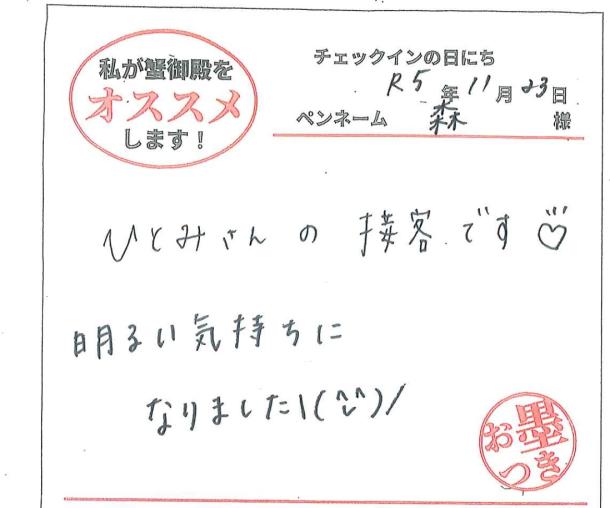 私が蟹御殿を
オススメ
します！
チェックインの日にち
R5年11月23日
ペンネーム 森 様
ひとみさんの接客です♡
明るい気持ちに
なりました\(^^)/
お墨
つき